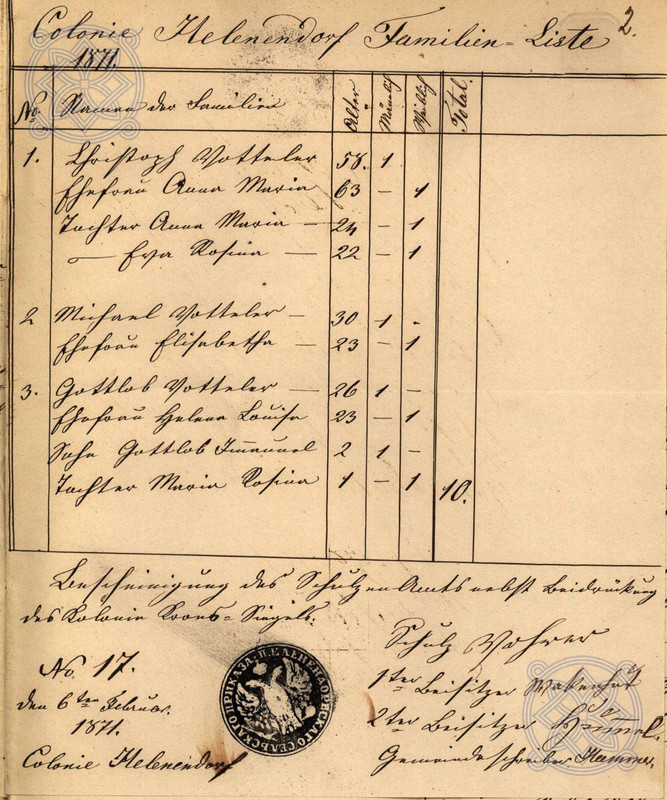 2.
Colonie Helenendorf Familien-Liste
1871.
No. Namen der Familien Alter Männlich Weiblich Total.
1. Christoph Votteler 58. 1
Ehefrau Anna Maria 63 — 1
Tochter Anna Maria — 24 — 1
" Eva Rosina — 22 — 1
2 Michael Votteler — 30 1 -
Ehefrau Elisabetha — 23 — 1
3. Gottlob Votteler — 26 1 —
Ehefrau Helena Louisa 23 — 1
Sohn Gottlob Immanuel 2 1 —
Tochter Maria Rosina 1 — 1 10.
Bescheinigung des Schulzen Amts nebst Beidrückung
des Kolonie Krons-Siegels.
Schulz Vohrer
No. 17. 1ter Beisitzer
den 6ten Februar. 2ter Beisitzer Hummel.
1871.
Colonie Helenendorf Gemeindeschreiber Hammer.
ЕЛЕНЕНДОРФСКАГО СЕЛЬСКАГО ПРИКАЗА